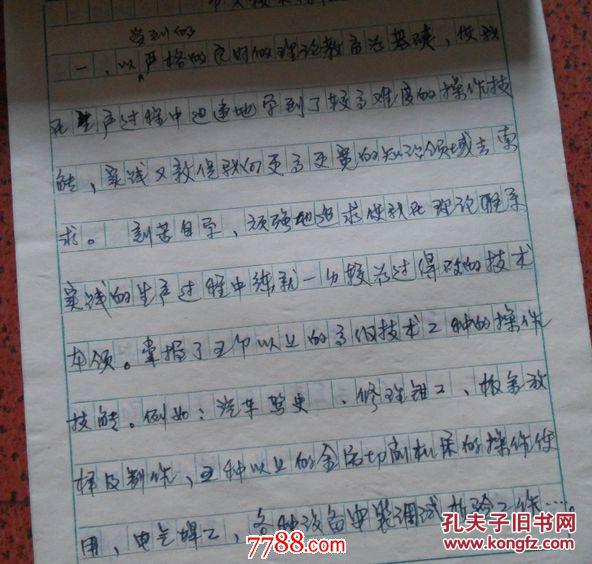 受到的
一、以严格的定时的理论教育为基础,使我
在生产过程中迅速地学到了较高难度的操作技
能,实践又教促我向更高更宽的知识领域去索
求。刻苦自学,顽强地追求使我在理论联系
实践的生产过程中练就一身较为过得硬的技术
本领。掌握了五个以上的高级技术工种的操作
技能。例如:汽车驾史、修理钳工、板金放
样及制作,五种以上的金属切削机床的操作使
用,电气焊工,各种设备安装调试检验工作……。
7788.com
孔夫子旧书网
www.kongfz.com